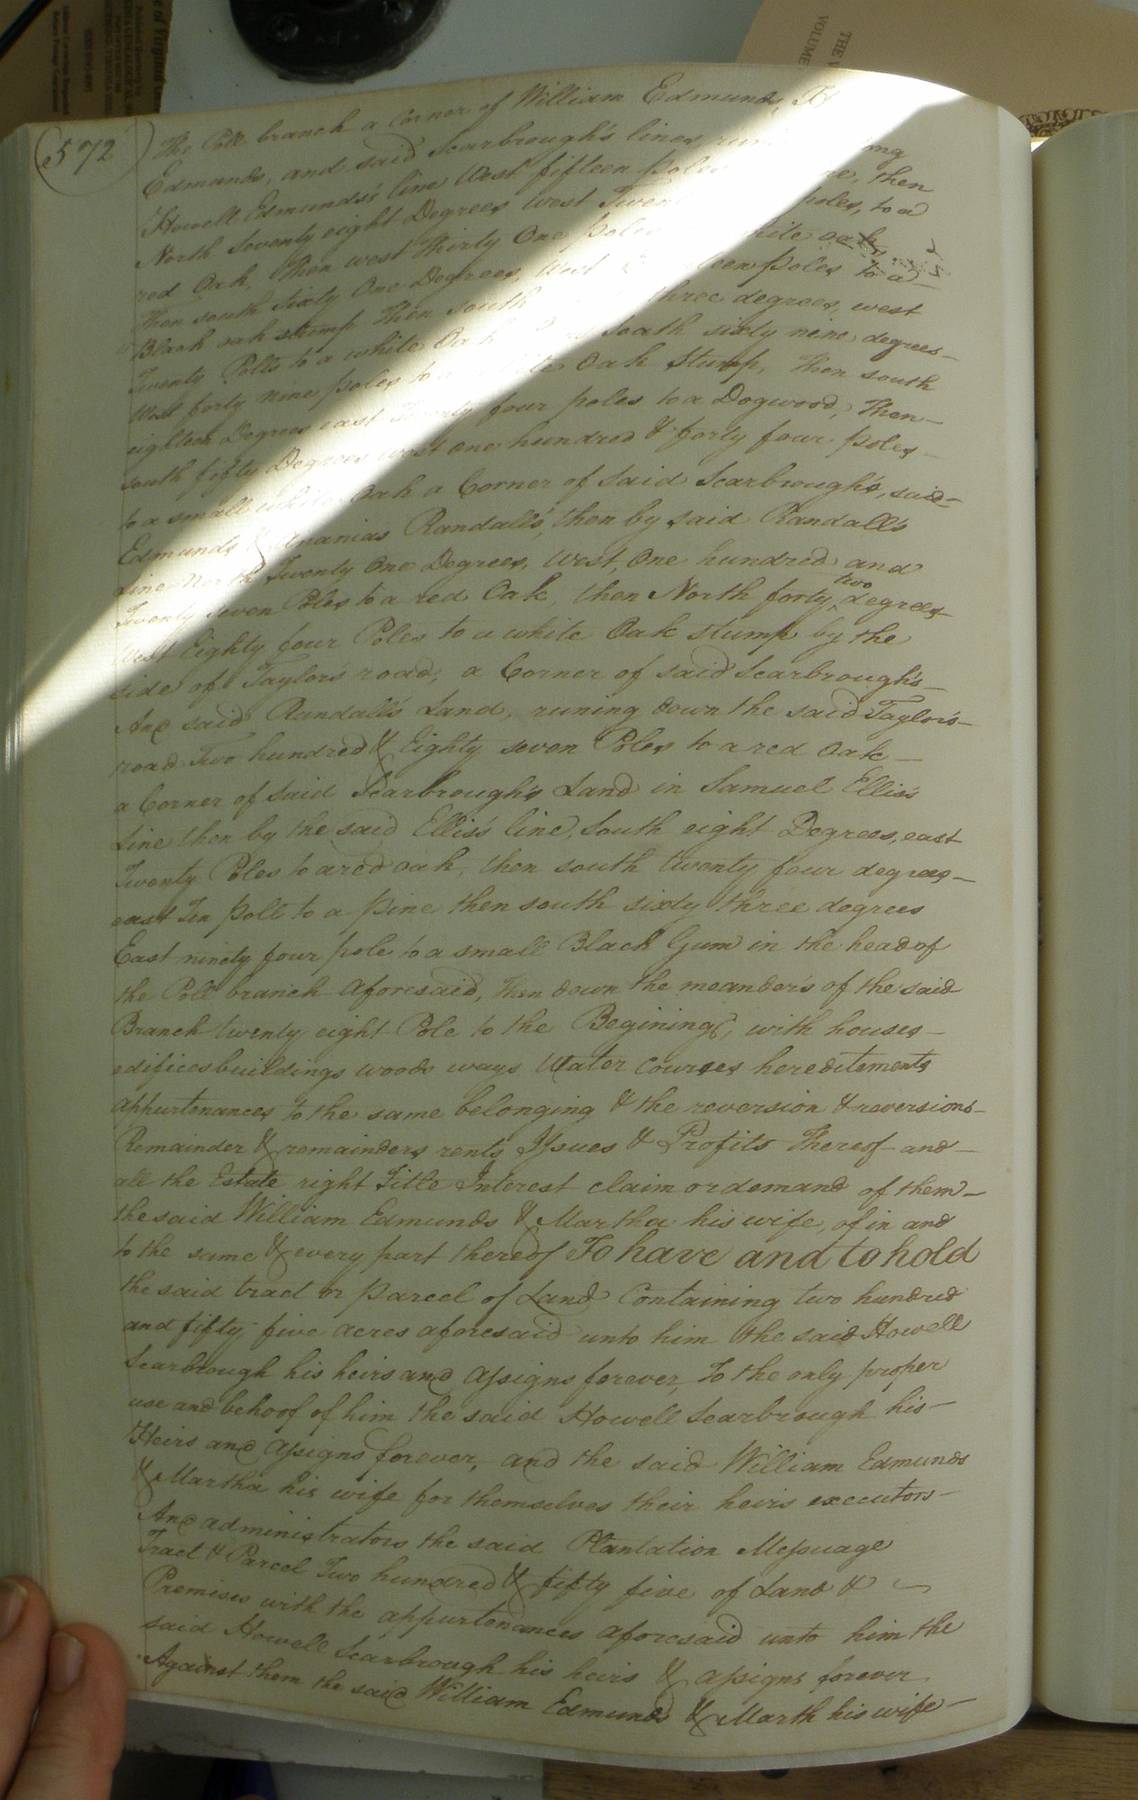 572
The Poll branch a Corner of William Edmunds, H
Edmunds, and said Scarbrough's lines
Howell Edmunds's line West fifteen poles then
North Seventy eight Degrees West poles, to a
red Oak, Then west thirty One poles white oak
Then south Sixty One Degrees, West poles to a
Black oak stump Then South three degrees, west
Twenty Poles to a white Oak South sixty nine degrees
West forty nine poles to a Oak Stump, Then south
eighteen Degrees east four poles to a Dogwood, Then
South fifty Degrees west one hundred & forty four poles
to a small white Oak a Corner of Said Scarbrough's, said
Edmunds & Ananias Randall's, then by said Randall's
Line North Twenty One Degrees, West, One hundred and
Twenty seven Poles to a red Oak, then North forty two degrees
West Eighty four Poles to a white Oak stump by the
side of Taylor's road, a Corner of said Scarbrough's
And said Randall's Land, runing down the said Taylor's
road Two hundred & Eighty seven Poles to a red Oak
a Corner of said Scarbrough's Land in Samuel Ellis's
Line then by the said Ellis's line, South eight Degrees, east
Twenty Poles to a red oak, then south twenty four degrees
east Ten poll to a pine then south sixty three degrees
East ninety four pole to a small Black Gum in the head of
the Poll branch aforesaid, Then down the meander's of the said
Branch twenty eight Pole to the Begining, with houses
edifices buildings woods ways Water Courses hereditements
appurtenances to the same belonging & the reversion & reversions
Remainder & remainders rents Issues & Profits Thereof and
all the Estate right Title Interest claim or demand of them
the said William Edmunds & Martha his wife, of in and
to the same & every part thereof To have and to hold
the said tract or parcel of Land Containing two hundred
and fifty five acres aforesaid unto him the said Howell
Scarbrough his heirs and assigns forever, To the only proper
use and behoof of him the said Howell Scarbrough his
Heirs and assigns forever, and the said William Edmunds
& Martha his wife for themselves their heirs executors
And administrators the said Plantation Messuage
Tract & Parcel Two hundred & fifty five of Land &
Premises with the appurtenances aforesaid unto him the
said Howell Scarbrough his heirs & assigns forever
Against them the said William Edmunds & Marth his wife